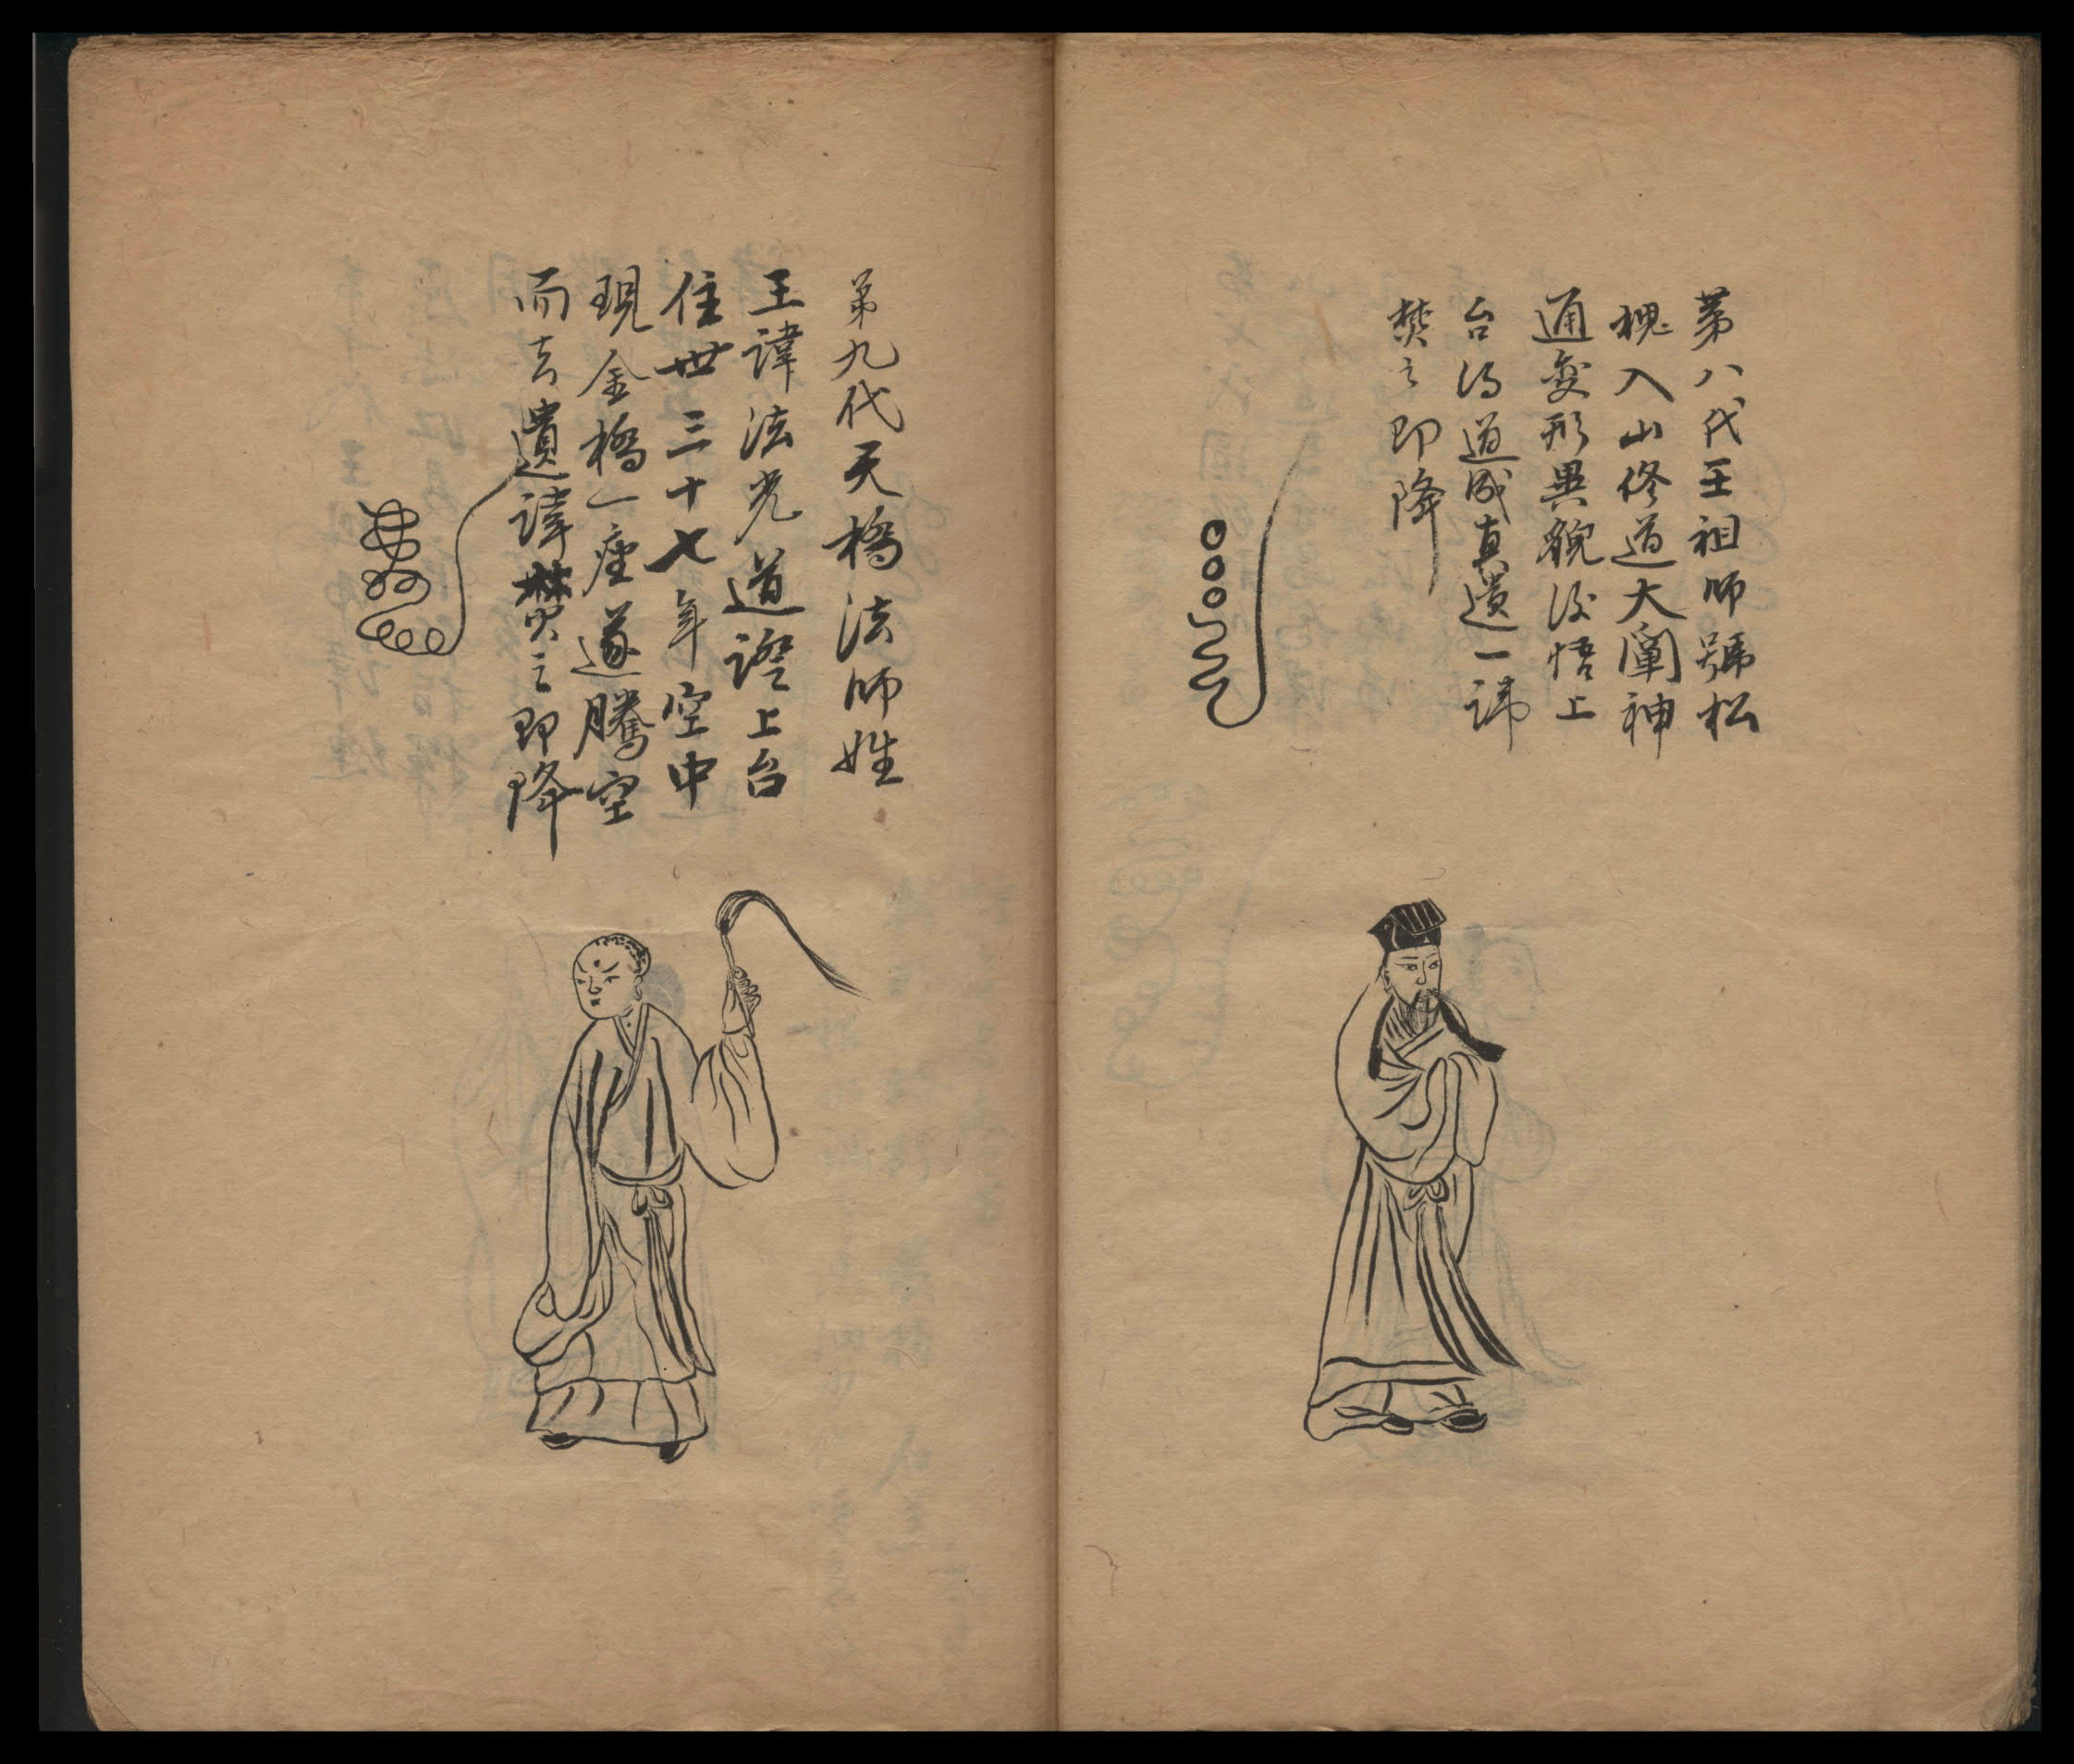 第八代王祖師號松
槐入山修道大闡神
通变形異貌後悟上
台得道成真遺一諱
焚之即降
第九代天橋法師姓
王諱法光道證上台
住世三十七年空中
現金橋一座遂騰空
而去遺諱焚之即降